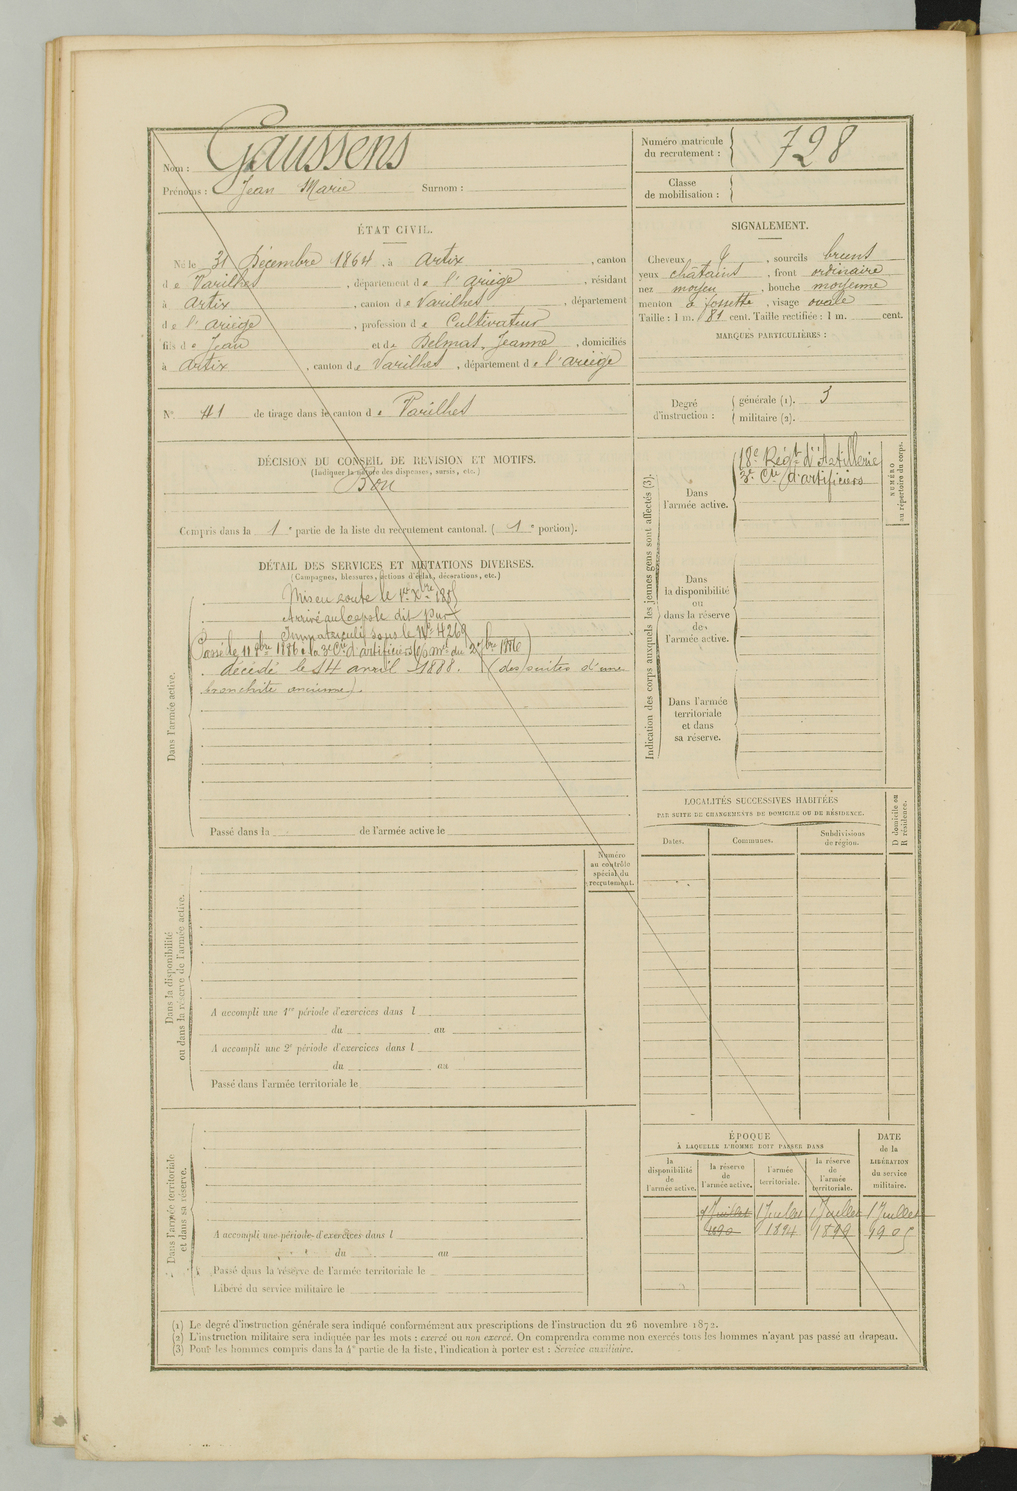 Nom : Gaussens
Prénoms : Jean Marie Surnom :
Numéro matricule du recrutement : 728
Classe de mobilisation :
ÉTAT CIVIL.
Né le 31 Décembre 1864, à Artix, canton
de Varilhes, département de l'ariège, résidant
à Artix, canton de Varilhes, département
de l'ariège, profession de Cultivateur
fils de Jean et de Delmas, Jeanne, domiciliés
à Artix, canton de Varilhes, département de l'ariège
N° 41 de tirage dans le canton de Varilhes
SIGNALEMENT.
Cheveux , sourcils bruns
yeux châtains, front ordinaire
nez moyen, bouche moyenne
menton à fossette, visage ovale
Taille : 1 m. 81 cent. Taille rectifiée : 1 m. cent.
MARQUES PARTICULIÈRES :
Degré d'instruction : générale (1). 3
militaire (2).
DÉCISION DU CONSEIL DE REVISION ET MOTIFS.
(Indiquer la nature des dispenses, sursis, etc.)
Bon
Compris dans la 1e partie de la liste du recrutement cantonal. ( 1e portion).
DÉTAIL DES SERVICES ET MUTATIONS DIVERSES.
(Campagnes, blessures, actions d'éclat, décorations, etc.)
Dans l'armée active.
Mis en route le 1er Xbre 1885
Arrivé au Corps le dit jour
Immatriculé sous le N° 4269
Passé le 11 8bre 1886 à la 3e Cie d'artificiers
décédé le 14 avril 1888. (des suites d'une
bronchite ancienne).
Passé dans la de l'armée active le
Indication des corps auxquels les jeunes gens sont affectés (3).
NUMÉRO au répertoire du corps.
Dans l'armée active.
18e Régt d'Artillerie
3e Cie d'artificiers
Dans la disponibilité ou dans la réserve de l'armée active.
Dans l'armée territoriale et dans sa réserve.
LOCALITÉS SUCCESSIVES HABITÉES
PAR SUITE DE CHANGEMENTS DE DOMICILE OU DE RÉSIDENCE.
Dates. Communes. Subdivisions de région. D domicile ou R résidence.
Dans la disponibilité ou dans la réserve de l'armée active.
Numéro au contrôle spécial du recrutement.
A accompli une 1re période d'exercices dans l
du au
A accompli une 2e période d'exercices dans l
du au
Passé dans l'armée territoriale le
Dans l'armée territoriale et dans sa réserve.
A accompli une période d'exercices dans l
du au
Passé dans la réserve de l'armée territoriale le
Libéré du service militaire le
ÉPOQUE
À LAQUELLE L'HOMME DOIT PASSER DANS
la disponibilité de l'armée active. la réserve de l'armée active. l'armée territoriale. la réserve de l'armée territoriale.
DATE de la LIBÉRATION du service militaire.
1 Juillet 1 Juillet 1 Juillet 1 Juillet
1890 1894 1899 1905
(1) Le degré d'instruction générale sera indiqué conformément aux prescriptions de l'instruction du 26 novembre 1872.
(2) L'instruction militaire sera indiquée par les mots : exercé ou non exercé. On comprendra comme non exercés tous les hommes n'ayant pas passé au drapeau.
(3) Pour les hommes compris dans la 4e partie de la liste, l'indication à porter est : Service auxiliaire.